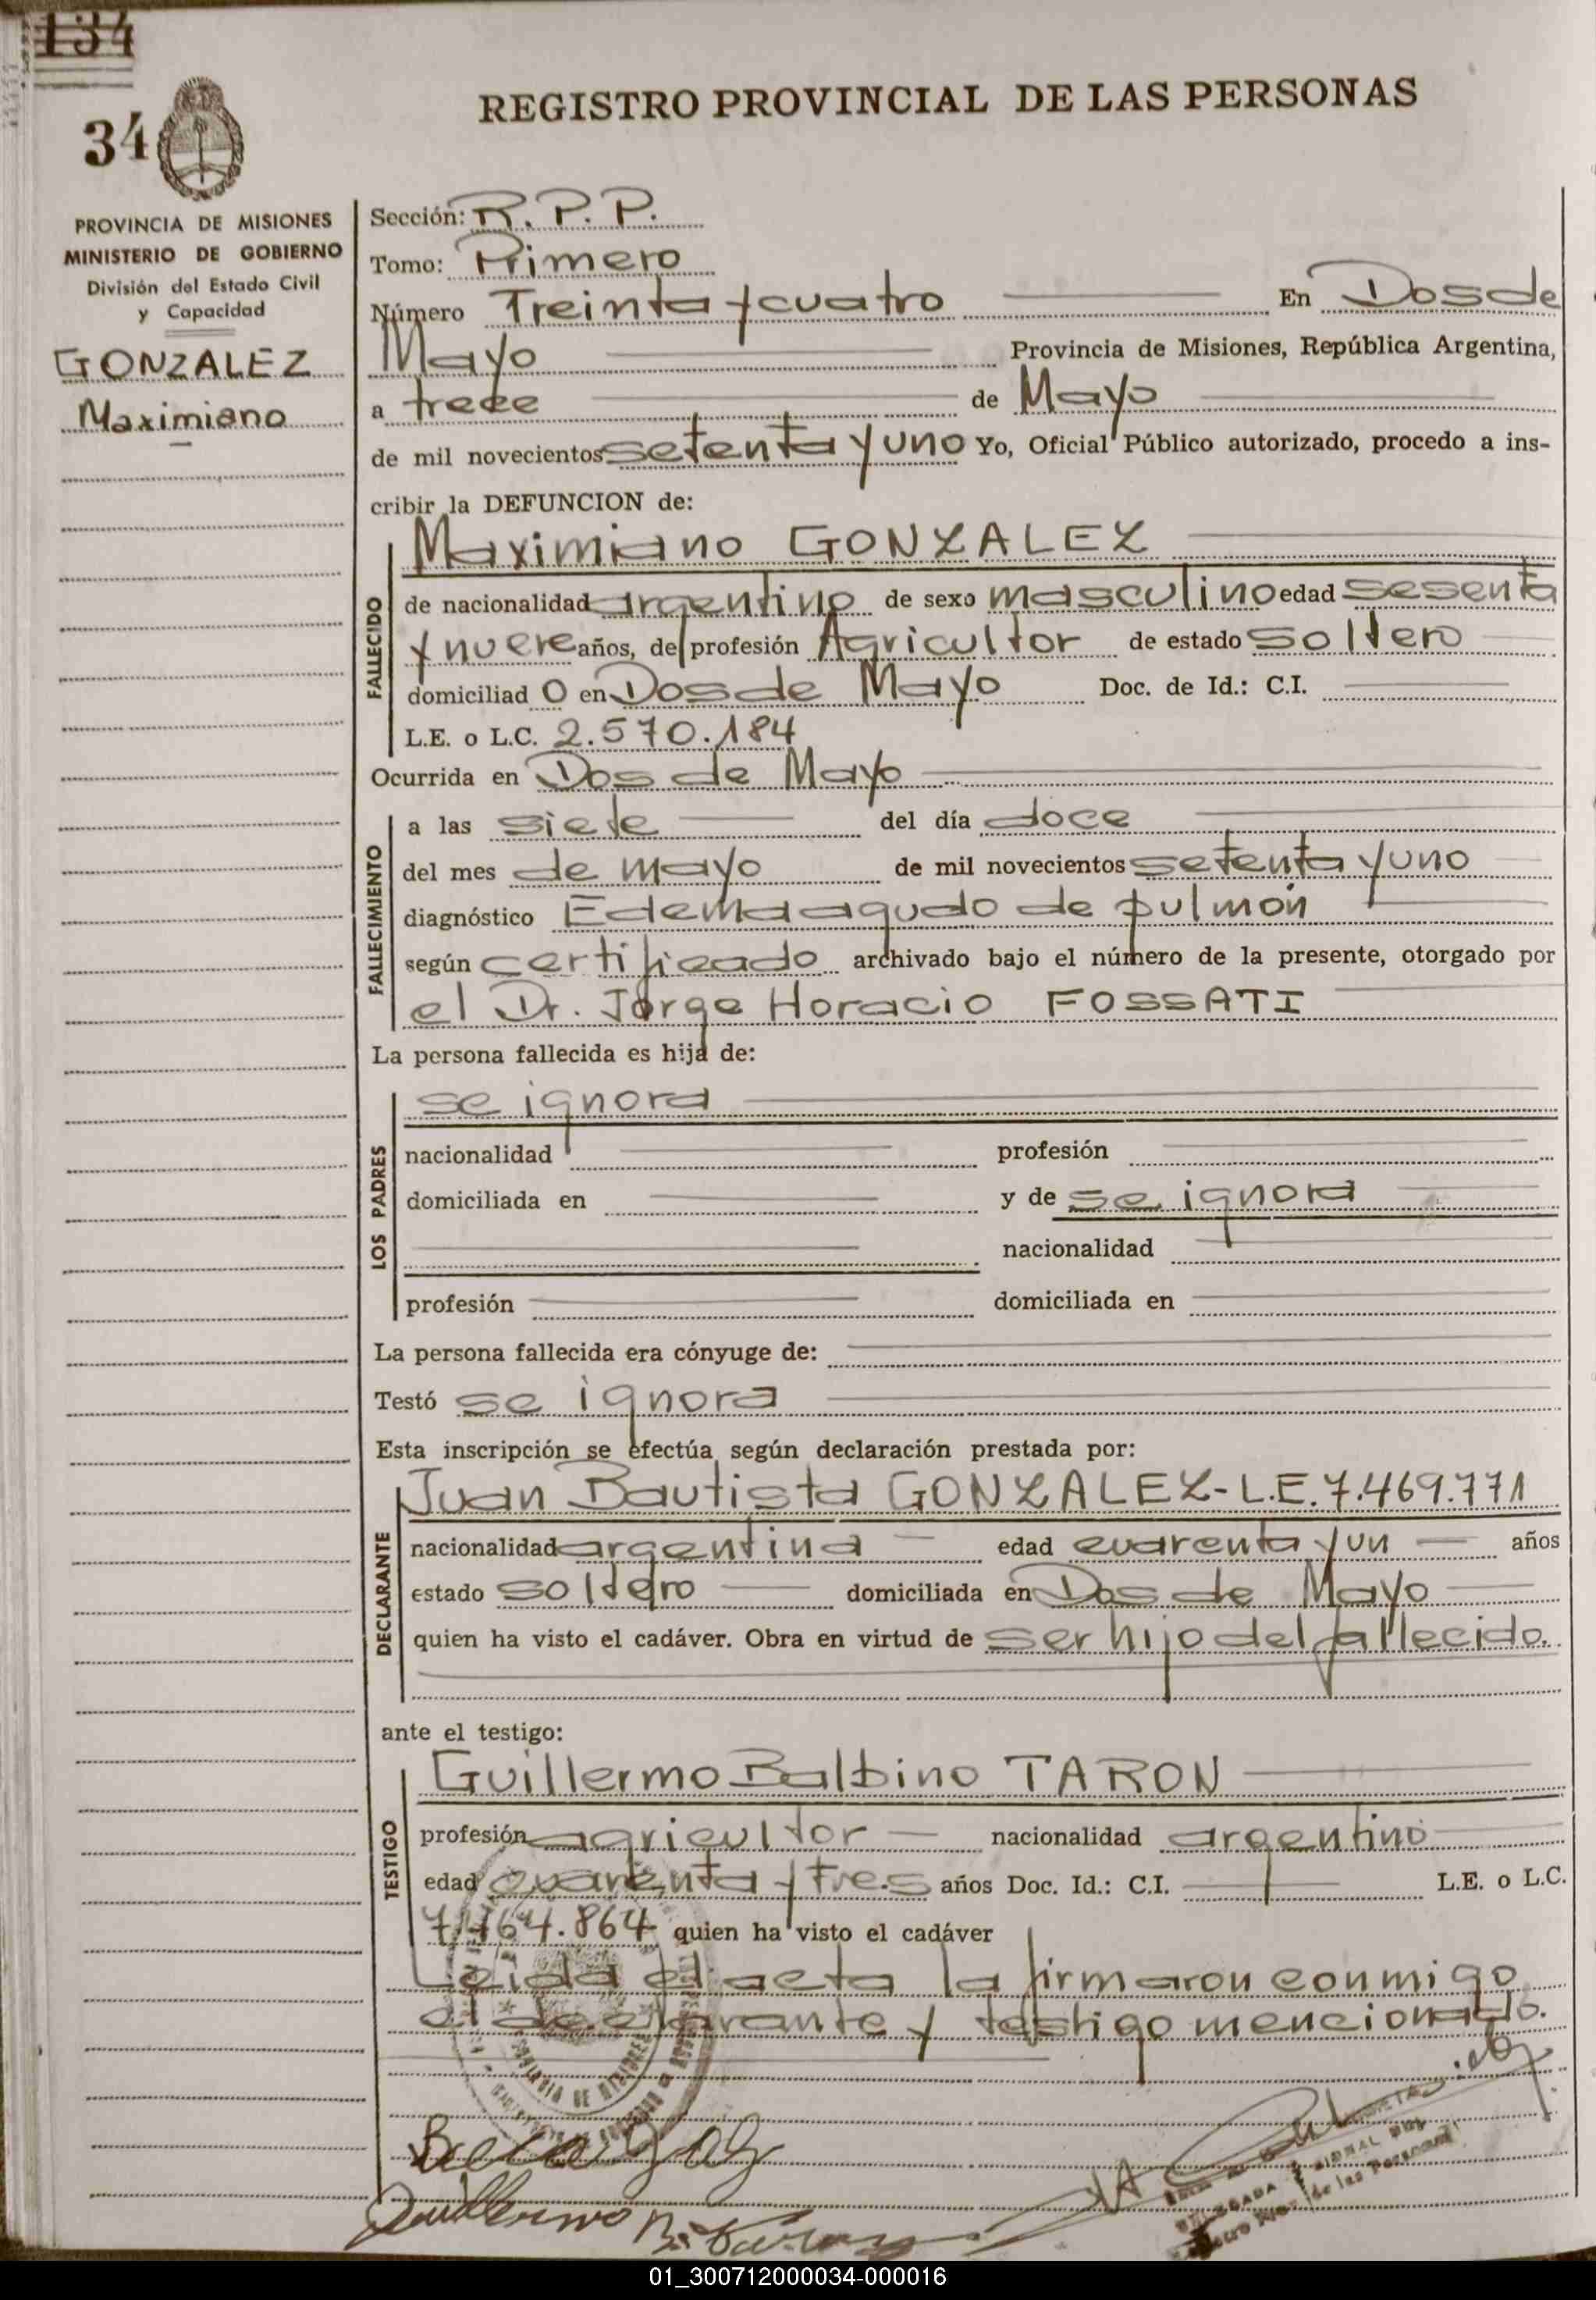 134
34
REGISTRO PROVINCIAL DE LAS PERSONAS
PROVINCIA DE MISIONES
MINISTERIO DE GOBIERNO
División del Estado Civil
y Capacidad
GONZALEZ
Maximiano
Sección: R. P. P.
Tomo: Primero
Número Treinta y cuatro En Dos de
Mayo Provincia de Misiones, República Argentina,
a trece de Mayo
de mil novecientos setenta y uno Yo, Oficial Público autorizado, procedo a ins-
cribir la DEFUNCION de:
Maximiano GONZALEZ
FALLECIDO
de nacionalidad argentino de sexo masculino edad sesenta
y nueve años, de profesión Agricultor de estado soltero
domiciliad o en Dos de Mayo Doc. de Id.: C.I.
L.E. o L.C. 2.570.184
Ocurrida en Dos de Mayo
FALLECIMIENTO
a las siete del día doce
del mes de mayo de mil novecientos setenta y uno
diagnóstico Edema agudo de pulmón
según certificado archivado bajo el número de la presente, otorgado por
el Dr. Jorge Horacio FOSSATI
La persona fallecida es hija de:
LOS PADRES
se ignora
nacionalidad profesión
domiciliada en y de se ignora
nacionalidad
profesión domiciliada en
La persona fallecida era cónyuge de:
Testó se ignora
Esta inscripción se efectúa según declaración prestada por:
DECLARANTE
Juan Bautista GONZALEZ - L.E. 7.469.771
nacionalidad argentina edad cuarenta y un años
estado soltero domiciliada en Dos de Mayo
quien ha visto el cadáver. Obra en virtud de ser hijo del fallecido.
ante el testigo:
TESTIGO
Guillermo Balbino TARON
profesión agricultor nacionalidad argentino
edad cuarenta y tres años Doc. Id.: C.I. L.E. o L.C.
7.464.864 quien ha visto el cadáver
Leida el acta la firmaron conmigo
el declarante y testigo mencionado.
Guillermo B. Taron
01_300712000034-000016